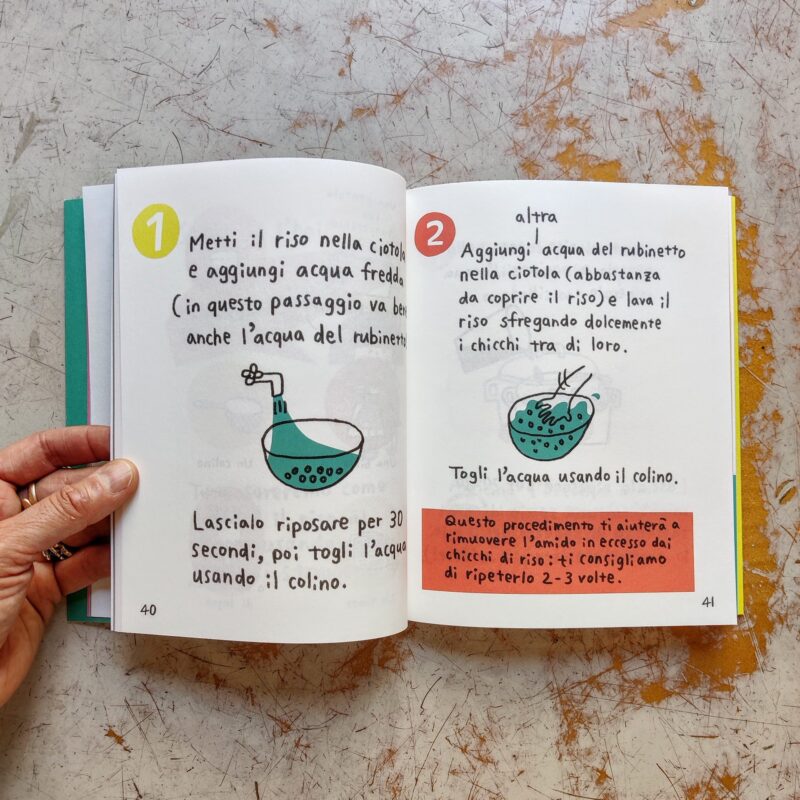 1
Metti il riso nella ciotola
e aggiungi acqua fredda
(in questo passaggio va bene
anche l'acqua del rubinetto
Lascialo riposare per 30
secondi, poi togli l'acqua
usando il colino.
40
2
altra
Aggiungi acqua del rubinetto
nella ciotola (abbastanza
da coprire il riso) e lava il
riso sfregando dolcemente
i chicchi tra di loro.
Togli l'acqua usando il colino.
Questo procedimento ti aiuterà a
rimuovere l'amido in eccesso dai
chicchi di riso: ti consigliamo
di ripeterlo 2-3 volte.
41